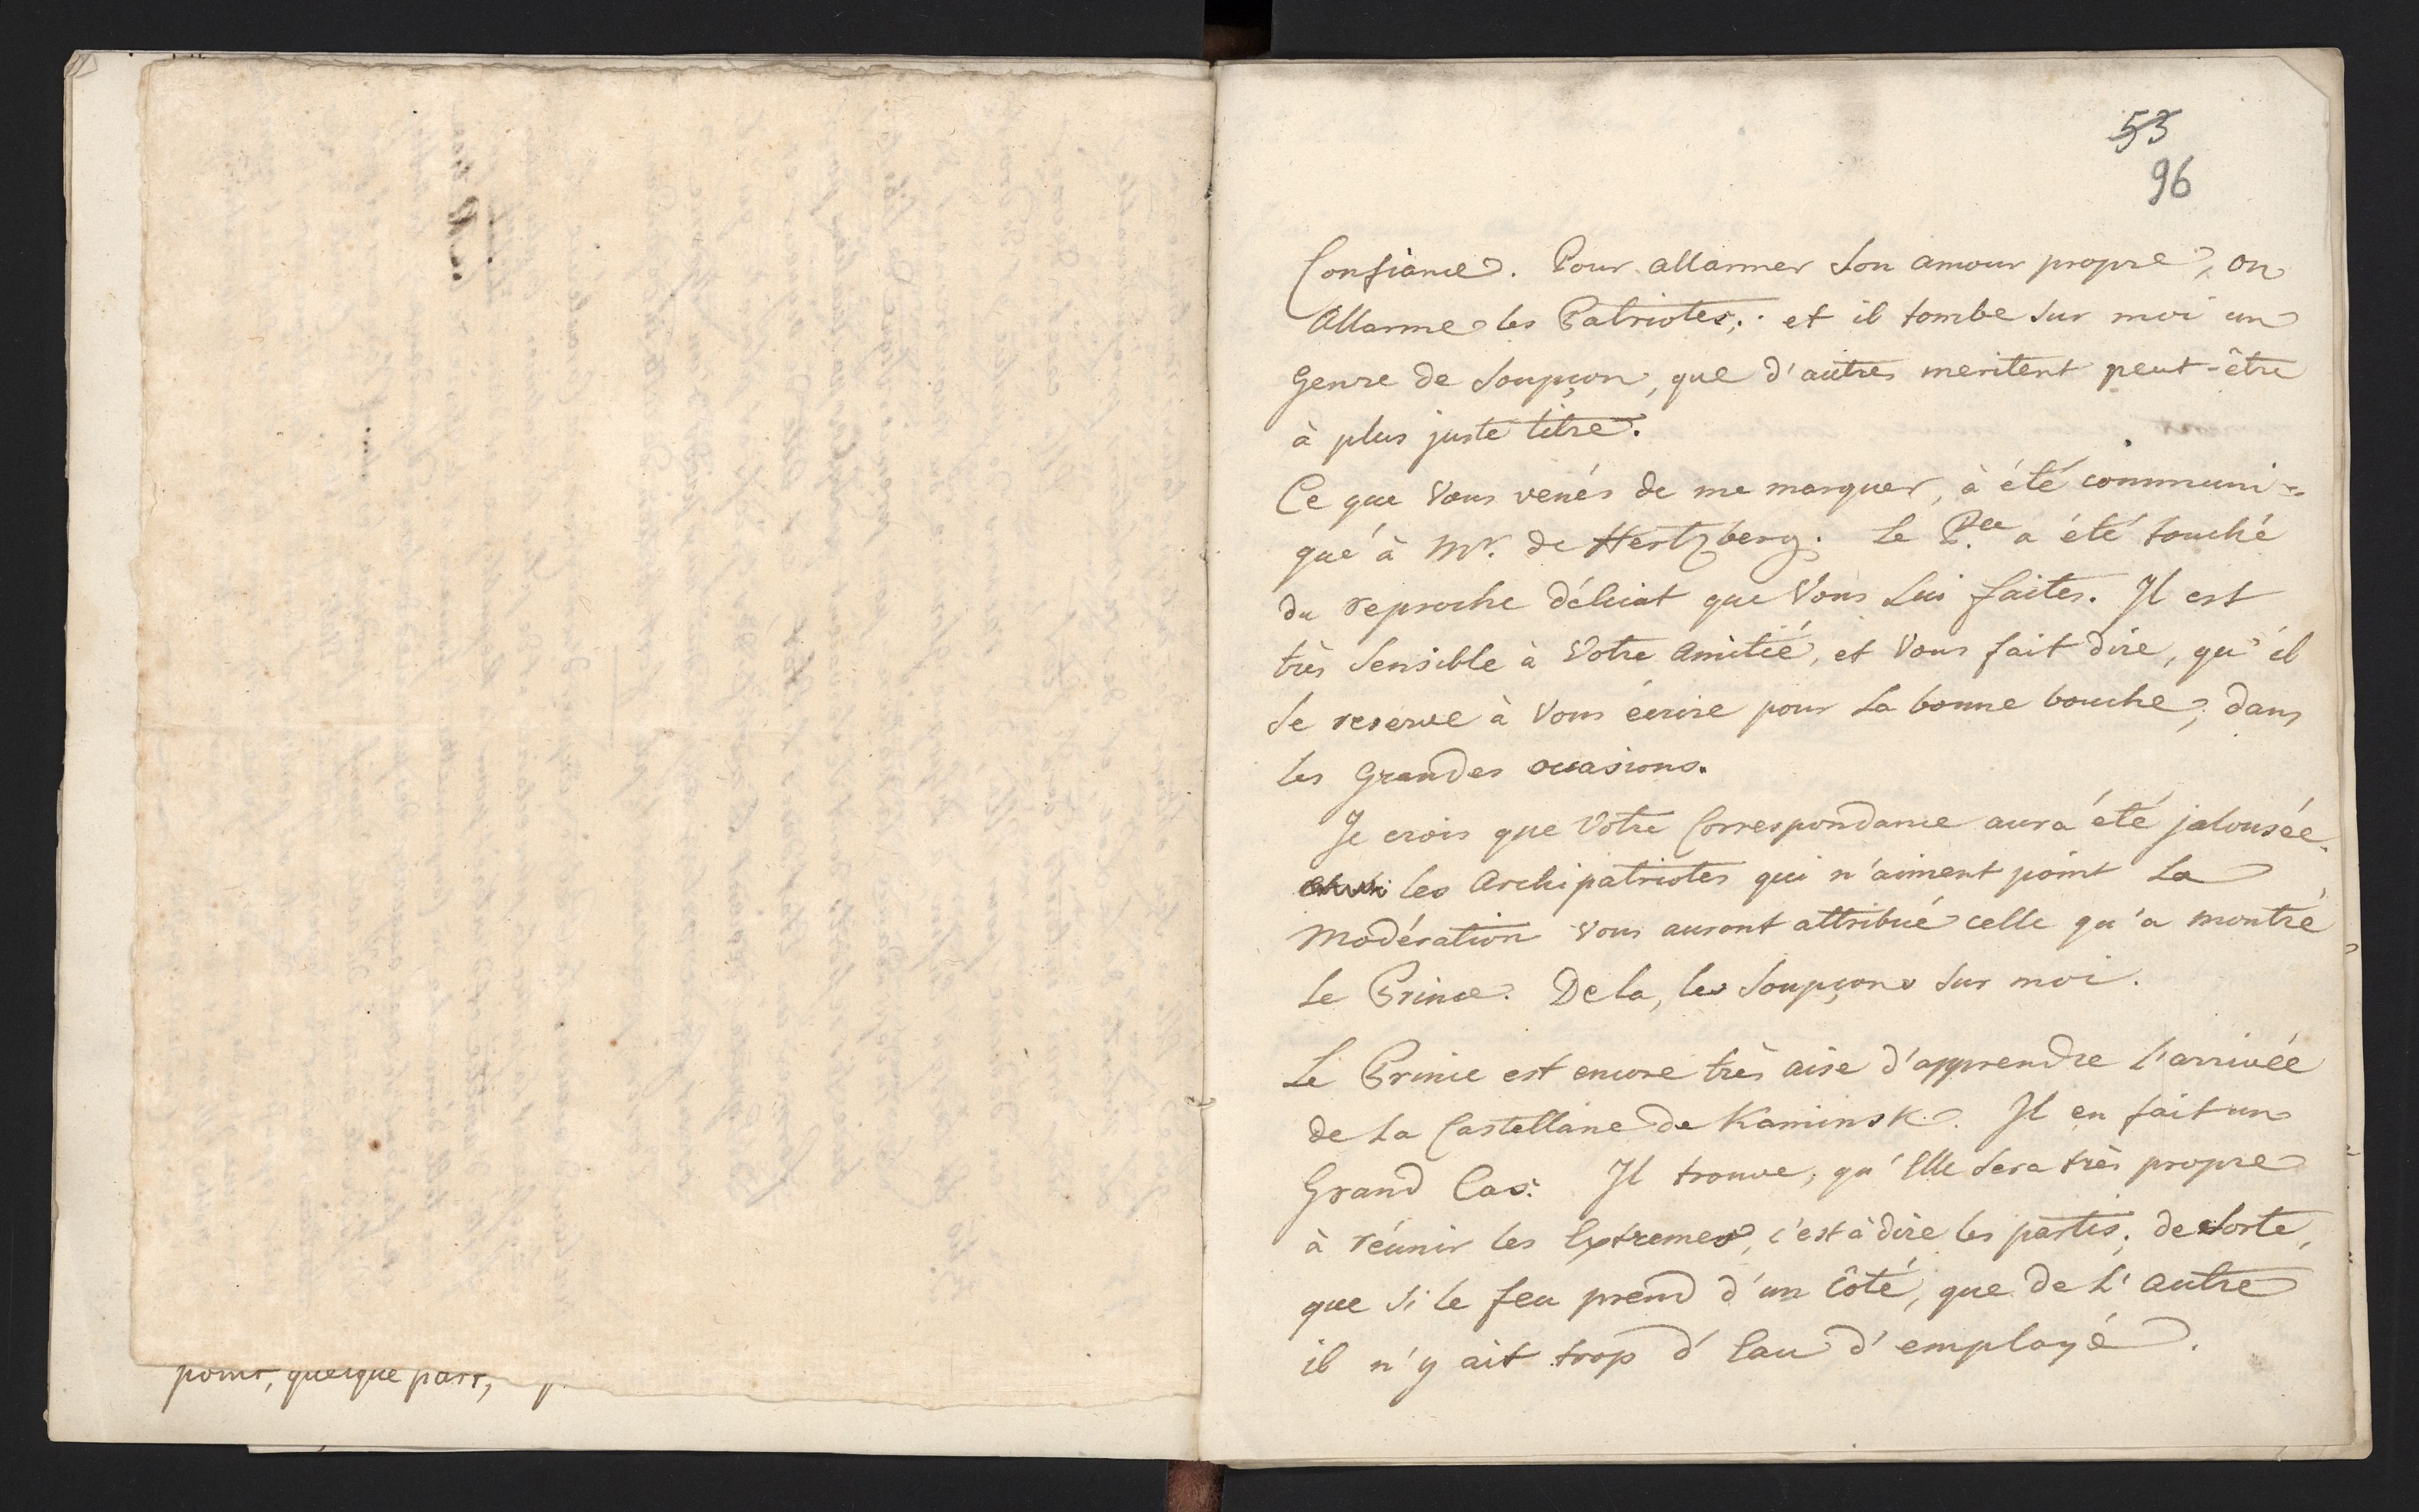 point, quelque part,
53
96
Confiance. Pour allarmer Son amour propre, on
Allarme les Patriotes; et il tombe Sur moi un
Genre de Soupçon, que d'autres meritent peut-être
à plus juste titre.
Ce que Vous venés de me marquer, à été communi-
qué à Mr. de Hertzberg. Le P.ce a été touché
du reproche délicat que Vous Lui faites. Il est
très Sensible à Votre Amitié, et Vous fait dire, qu'il
Se reserve à Vous écrire pour La bonne bouche, dans
les Grandes occasions.
Je crois que Votre Correspondance aura été jalousée.
les Archipatriotes qui n'aiment point La
Modération Vous auront attribué celle qu'a montré
Le Prince. De la, les Soupçons Sur moi.
Le Prince est encore très aise d'apprendre l'arrivée
de La Castellane de Kaminsk. Il en fait un
Grand Cas. Il trouve, qu'Elle Sera très propre
à réunir les Extremes, c'est à dire les partis; de Sorte,
que Si le feu prend d'un Côté, que de L'autre
il n'y ait trop d'Eau d'employé.